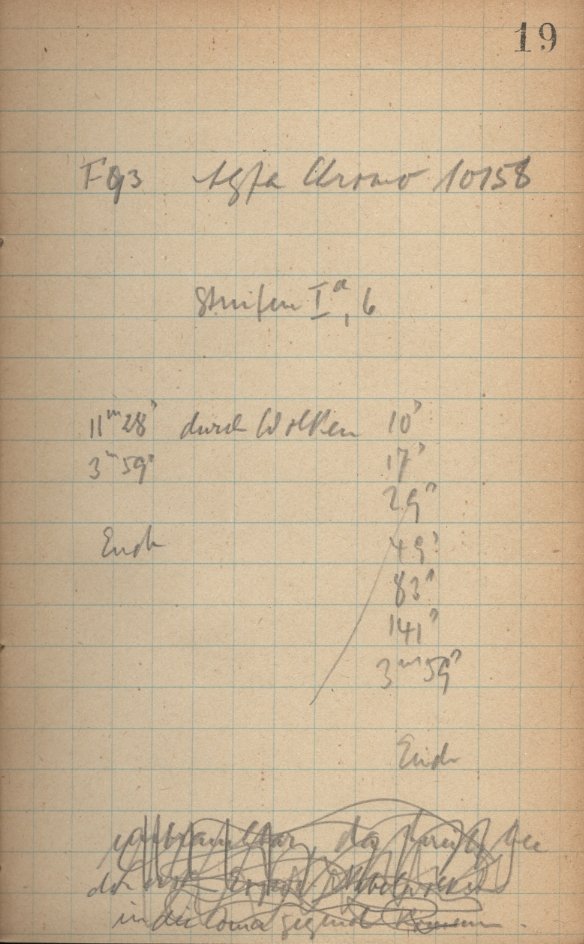 19
F93 Agfa Chromo 10158
Streifen Iª, 6
11ᵐ 28ˢ durch Wolken 10ˢ
3ᵐ 59ˢ 17ˢ
29ˢ
Ende 49ˢ
83ˢ
141ˢ
3ᵐ 59ˢ
Ende
das bei
der
in die gegend